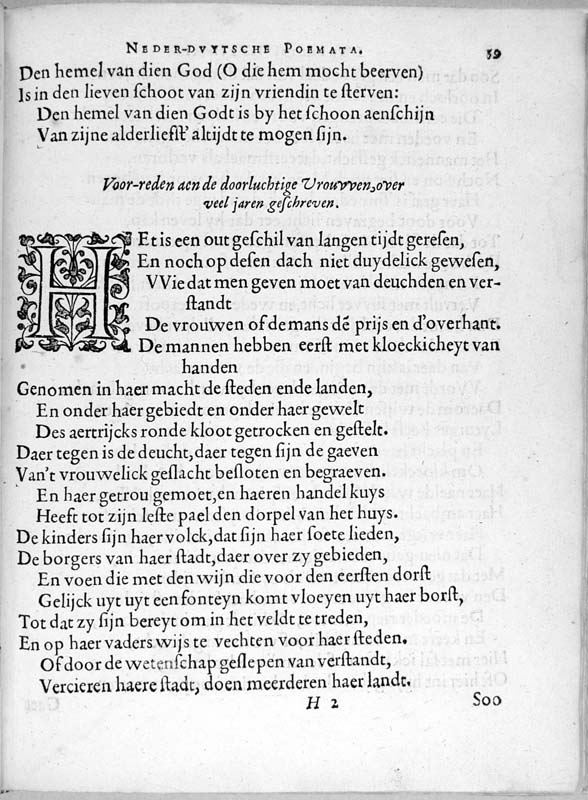 NEDER-DVYTSCHE POEMATA. 59
Den hemel van dien God (O die hem mocht beerven)
Is in den lieven schoot van zijn vriendin te sterven:
Den hemel van dien Godt is by het schoon aenschijn
Van zijne alderliefst' altijdt te mogen sijn.
Voor-reden aen de doorluchtige Vrouwen, over
veel jaren geschreven.
HEt is een out geschil van langen tijdt geresen,
En noch op desen dach niet duydelick gewesen,
VVie dat men geven moet van deuchden en ver-
standt
De vrouwen of de mans dē prijs en d'overhant.
De mannen hebben eerst met kloeckicheyt van
handen
Genomen in haer macht de steden ende landen,
En onder haer gebiedt en onder haer gewelt
Des aertrijcks ronde kloot getrocken en gestelt.
Daer tegen is de deucht, daer tegen sijn de gaeven
Van't vrouwelick geslacht besloten en begraeven.
En haer getrou gemoet, en haeren handel kuys
Heeft tot zijn leste pael den dorpel van het huys.
De kinders sijn haer volck, dat sijn haer soete lieden,
De borgers van haer stadt, daer over zy gebieden,
En voen die met den wijn die voor den eersten dorst
Gelijck uyt uyt een fonteyn komt vloeyen uyt haer borst,
Tot dat zy sijn bereyt om in het veldt te treden,
En op haer vaders wijs te vechten voor haer steden.
Of door de wetenschap geslepen van verstandt,
Vercieren haere stadt, doen meerderen haer landt.
H 2 Soo